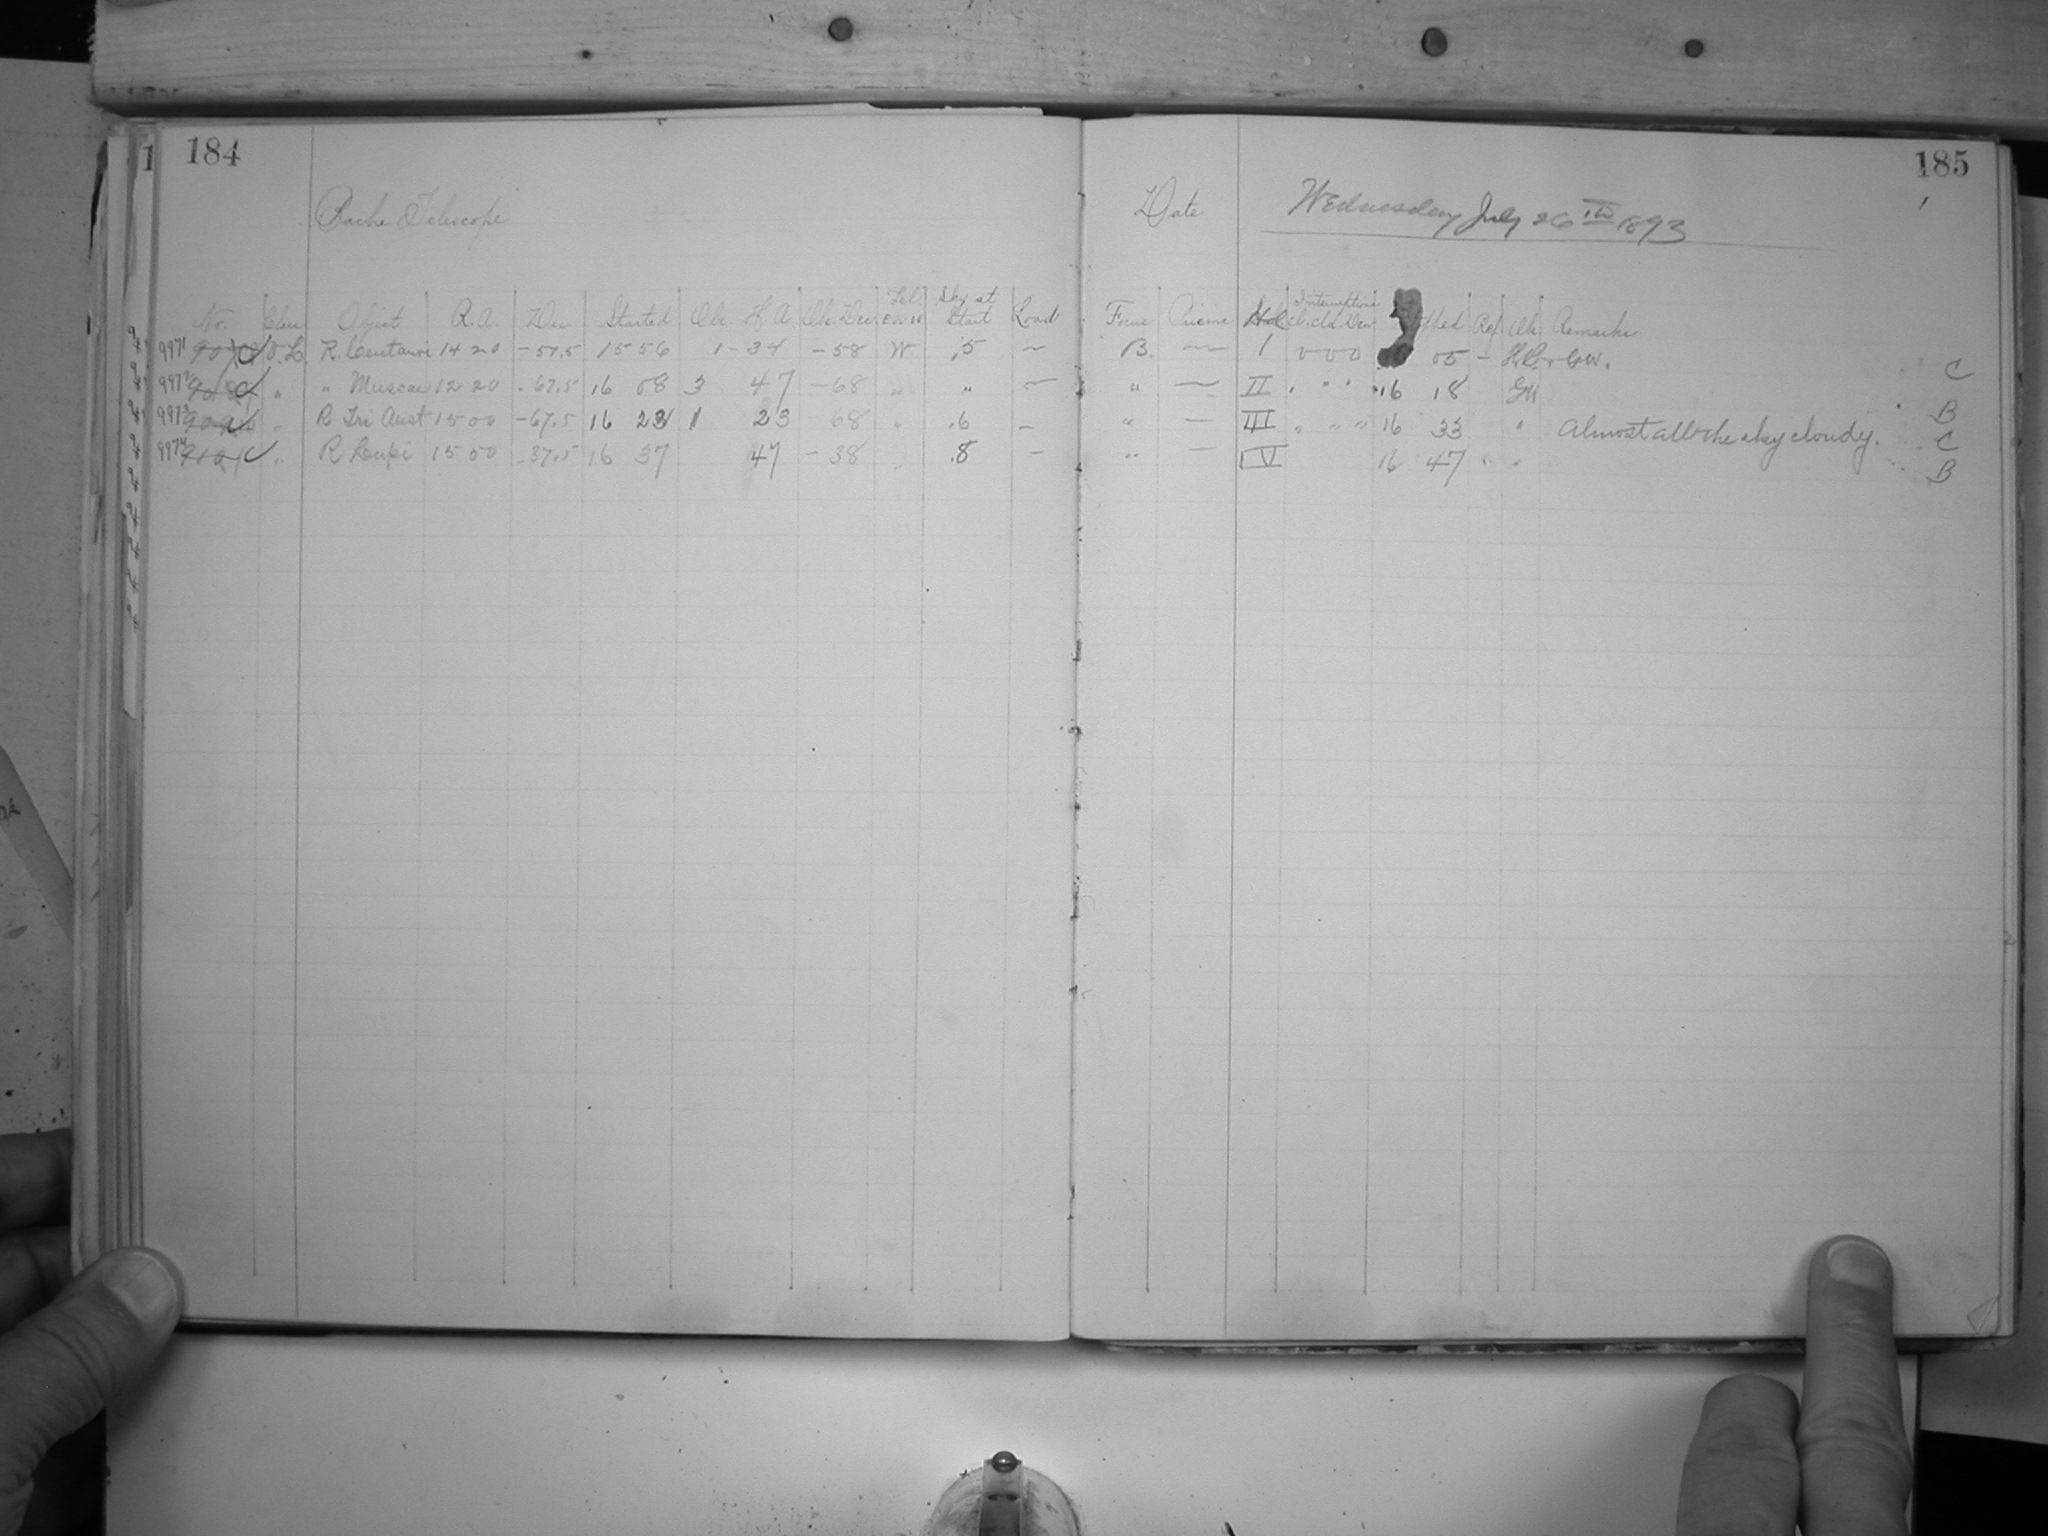 184
185
Bache Telescope
Date Wednesday July 26th 1893
No. Class Object R.A. Dec Started Ob. H.A. Ob. Dec. Tel. E or W Sky at Start Load Focus Prisms Interruptions Cl. Cld. Dev. Ref. Ob. Remarks
9971 O.L. R. Centauri 14 20 -57.5 15 56 1 - 34 -58 W .5 — B. — I 0 0 0 05 —
9972 " " Muscae 12 20 -67.5 16 08 3 47 -68 " " — " — II " " " 16 18 C
9973 " R Tri Aust 15 00 -67.5 16 23 1 23 68 " .6 — " — III " " " 16 33 " Almost all the sky cloudy. B
9974 " R Lupi 15 50 -37.5 16 37 47 -38 .8 — " — IV 16 47 " " C
B